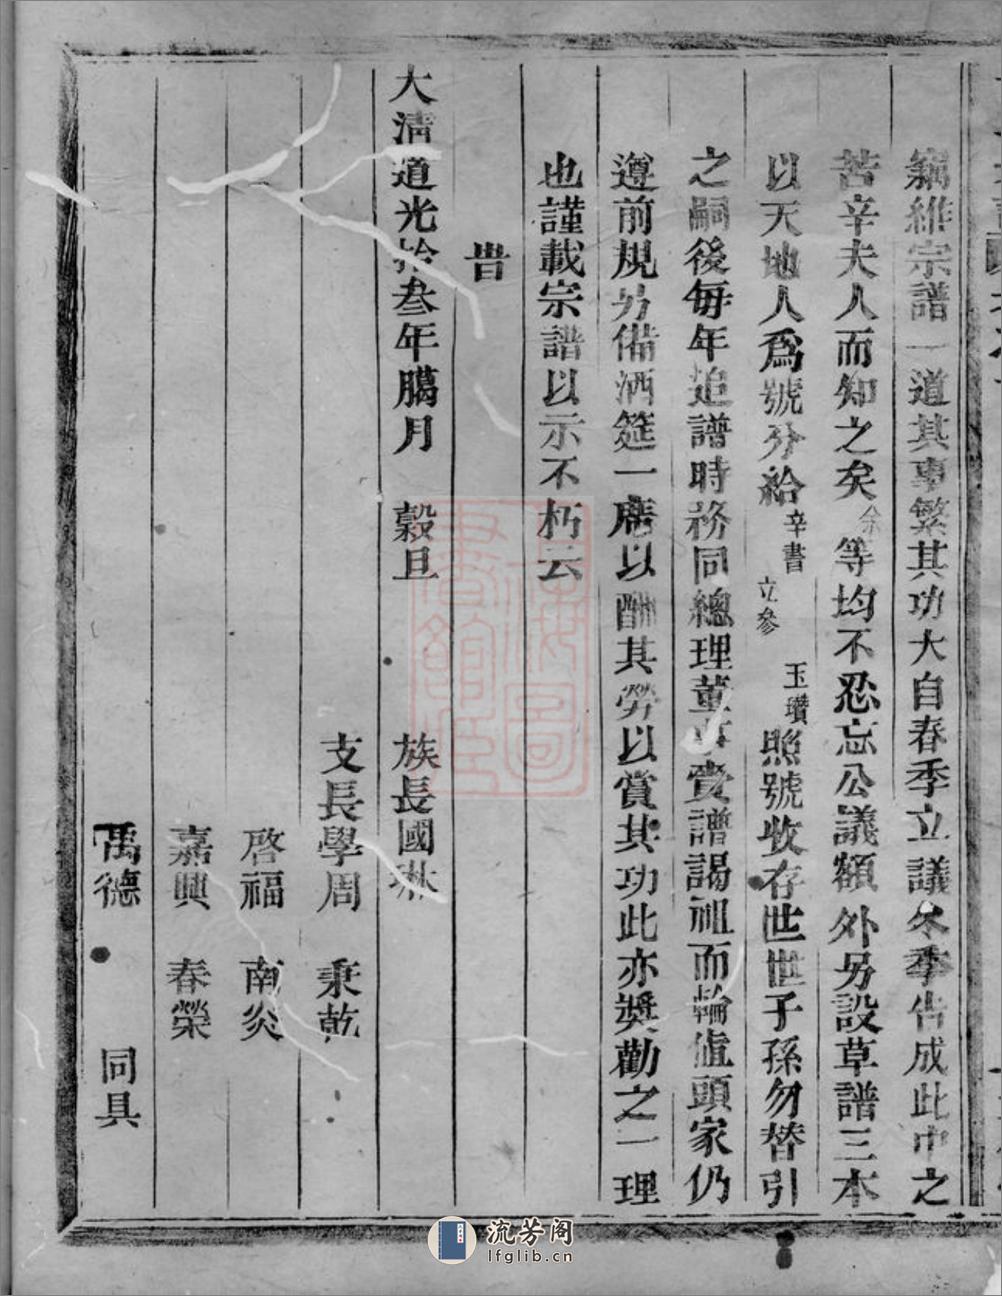 竊維宗譜一道其事繁其功大自春季立議冬季告成此中之
苦辛夫人而知之矣余等均不忍忘公議額外另設草譜三本
以天地人爲號分給辛書 立參 玉瓚照號收存世世子孫勿替引
之嗣後每年追譜時務同總理董事賫譜謁祖而輪值頭家仍
遵前規另備酒筵一席以酬其勞以賞其功此亦獎勸之一理
也謹載宗譜以示不朽云
旹
大清道光拾叁年臈月 穀旦 族長國琳
支長學周 秉乾
啓福 南炎
嘉興 春榮
禹德 同具
流芳阁
lfglib.cn